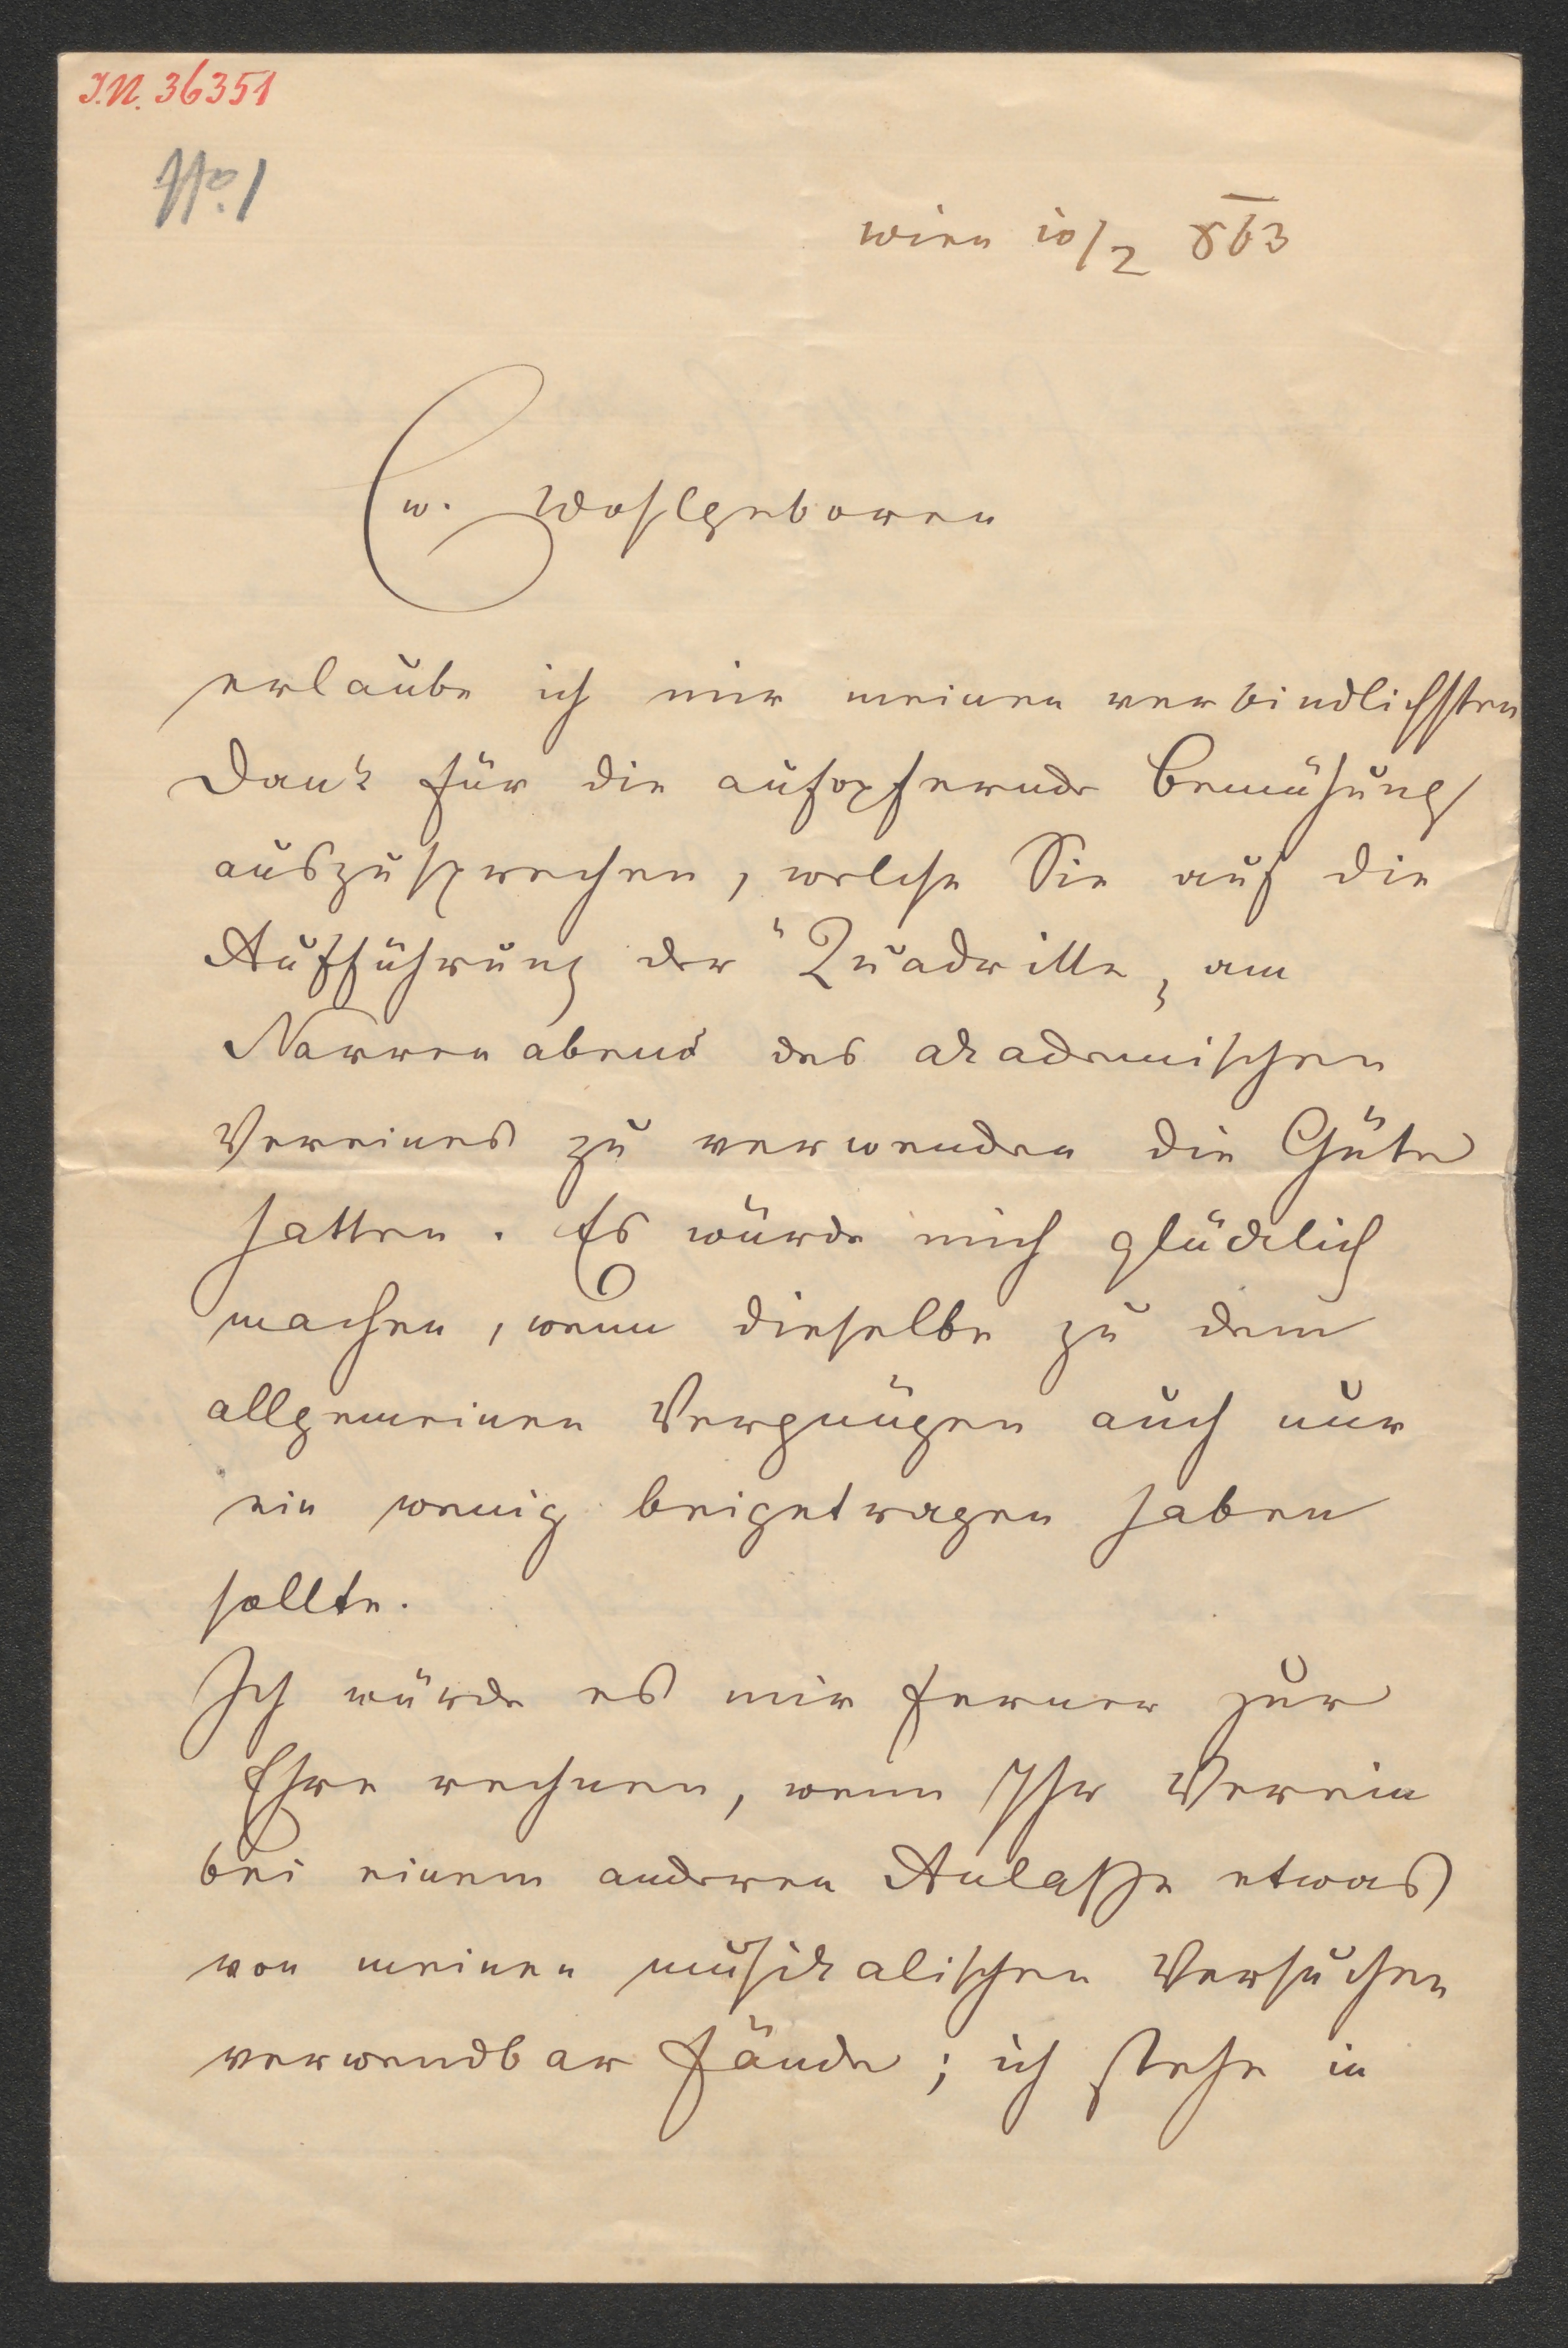 I.N. 36351
No. 1
Wien 10/2 863
Ew. Wohlgeboren
erlaube ich mir meinen verbindlichsten
Dank für die aufopfernde Bemühung
auszusprechen, welche Sie auf die
Aufführung der "Quadrille„ am
Narrenabend des akademischen
Vereines zu verwenden die Güte
hatten. Es würde mich glücklich
machen, wenn dieselbe zu dem
allgemeinen Vergnügen auch nur
ein wenig beigetragen haben
sollte.
Ich würde es mir ferner zur
Ehre rechnen, wenn Ihr Verein
bei einem anderen Anlasse etwas
von meinen musikalischen Versuchen
verwendbar fände; ich stehe in